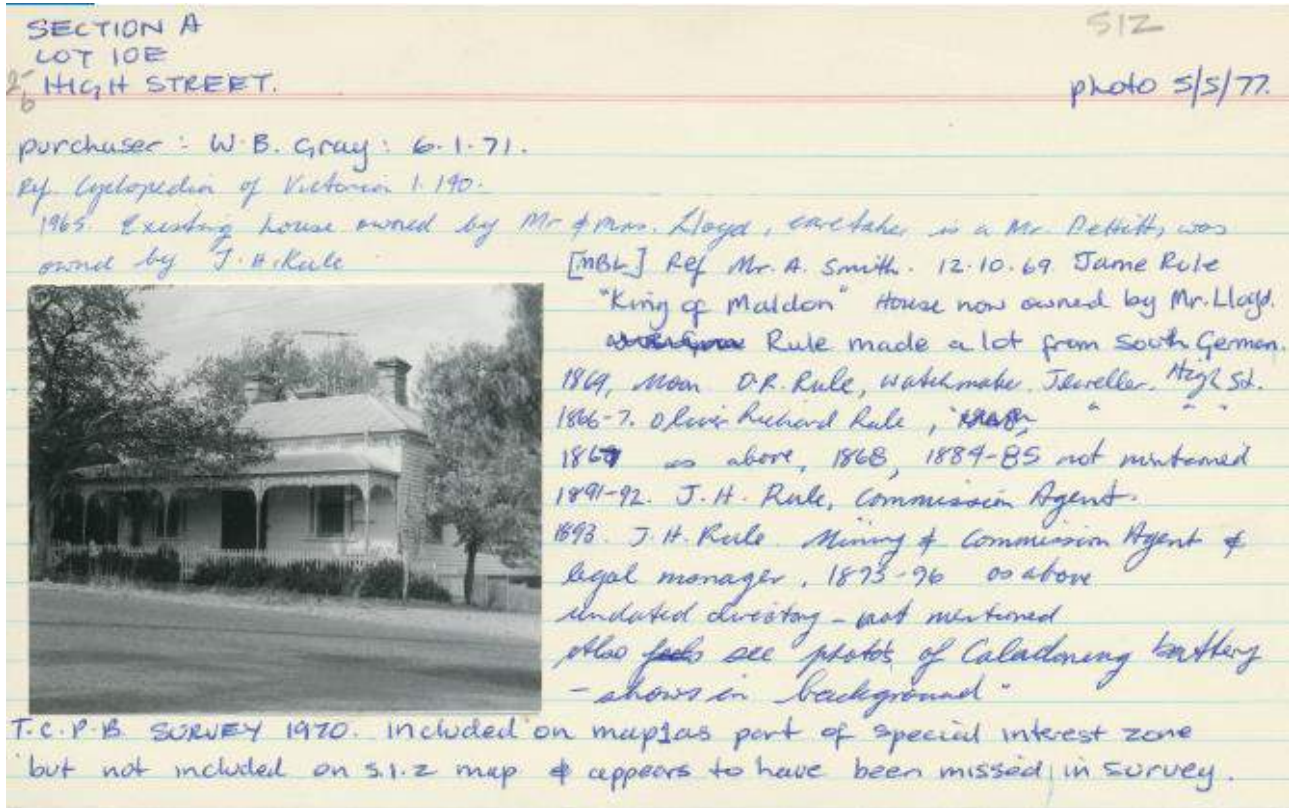 SECTION A
SIZ
LOT 10E
HIGH STREET.
photo 5/5/77.
purchaser : W.B. Gray : 6.1.71.
Ref. Cyclopedia of Victoria 1.190.
1965. Existing house owned by Mr & Mrs. Lloyd, caretaker is a Mr. Pettitt, was
owned by J.H. Rule
[MBL] Ref Mr. A. Smith. 12.10.69 Jame Rule
"King of Maldon" House now owned by Mr. Lloyd.
Rule made a lot from South German.
1869, O.R. Rule, watchmaker, Jeweller. High St.
1866-7. Oliver Richard Rule, " " "
186 as above, 1868, 1884-85 not mentioned
1891-92. J.H. Rule, Commission Agent.
1893. J.H. Rule Mining & Commission Agent &
legal manager, 1893-96 as above
undated directory - not mentioned
Also see photo's of battery
- shows in background "
T.C.P.B. SURVEY 1970. Included on map 1 as part of special interest zone
but not included on S.I.Z map & appears to have been missed in survey.